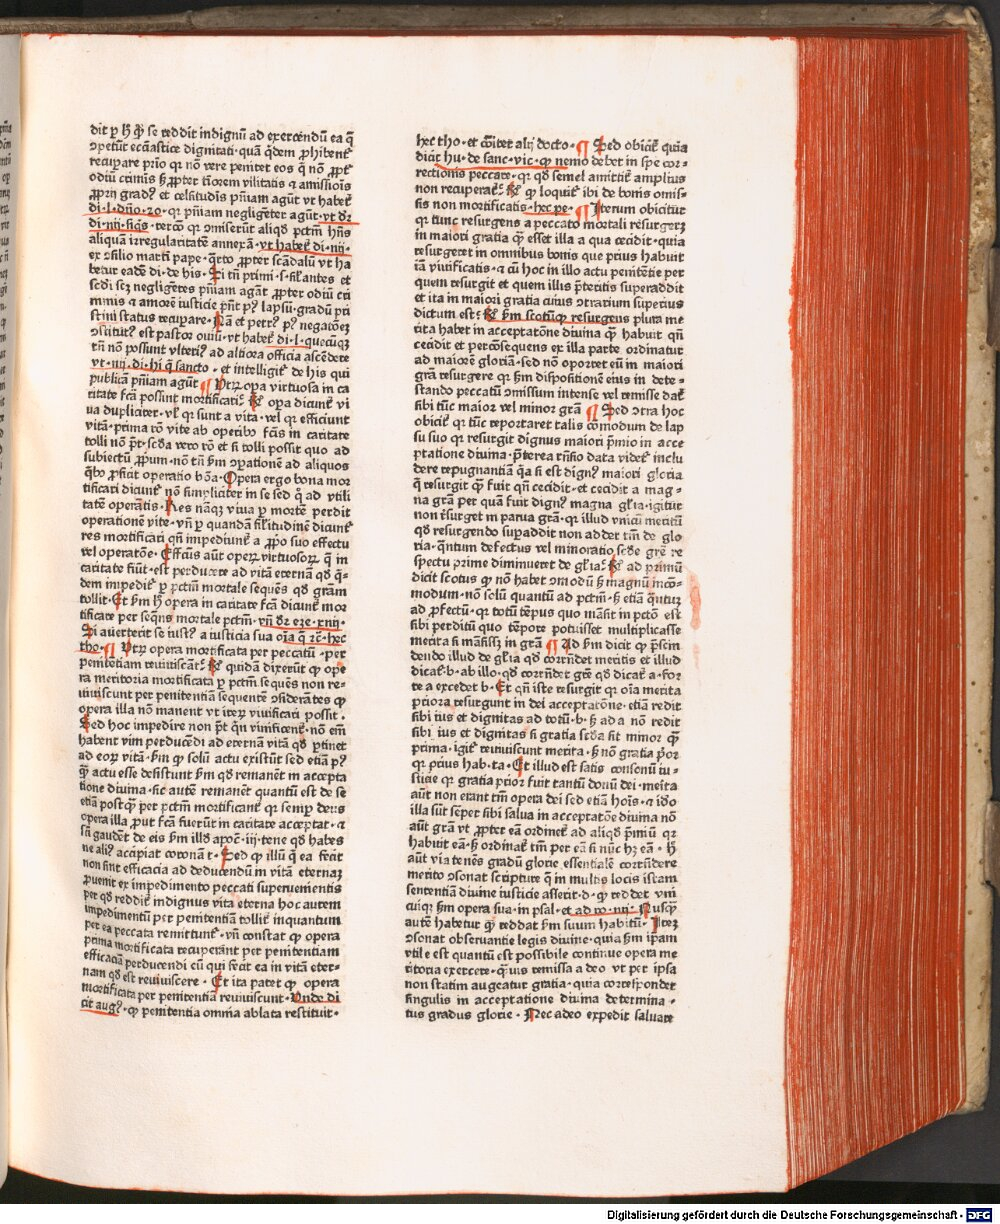 dit ꝑ hͦ ꝙ se reddit indignū ad exercendū ea q̄
ꝯpetūt ecc̄iastice dignitati· quā q̄dem ꝓhibent᷑
recuꝑare prīo qꝛ nō vere penitet eos q̄ nō ꝓpt᷑
odiū crimīs sꝫ ꝓpter tīorem vilitatis ⁊ amissiōis
ꝓprij gradꝰ et celsitudīs pn̄iam agūt vt habet᷑
di·l·dn̄o·2o·qꝛ pn̄iam negligēter agūt·vt dꝛ
di·iiij·siqs·tercō qꝛ ꝯmiserūt aliqd̄ pctm̄ hn̄s
aliquā irregularitatē annexā·vt habet᷑ di·iiij·
ex ꝯsilio marti pape·q̄rto ꝓpter scādalū vt ha
betur eadē di·de his· Si tn̄ primi·s·silantes et
sedi seꝫ negligētes pn̄iam agāt ꝓpter odiū cri
minis ⁊ amorē iusticie pn̄t pꝰ lapsū·gradū pri
stini status recuꝑare· Nā et petrꝰ pꝰ negatōeꝫ
ꝯstitutꝰ est pastor ouiū·vt habet᷑ di·l·quecūqꝫ
tn̄ nō possunt vlteriꝰ ad altiora officia ascēdere
vt·iiij·di·hi q̄ sancto·et intelligit᷑ de his qui
publicā pn̄iam agūt ¶ Vtrꝫ oꝑa virtuosa in ca
ritate fcā possint mortificari· Rͤ oꝑa dicunt᷑ vi
ua duplicit̄er·vl̓ qꝛ sunt a vita·vel qꝛ efficiunt
vitā·prima rō vite ab oꝑeribꝰ fcīs in caritate
tolli nō pt̄·scd̄a vero rō et si tolli possit quo ad
subiectū ꝓpum·nō tn̄ ẜm ꝯparationē ad aliquos
qͥbꝰ ꝓficit operatio bōa· Opera ergo bona mor
tificari dicunt᷑ nō simpliciter in se sed qͦ ad vtili
tatē operātis· Res nāqꝫ viua ꝑ mortē perdit
operationē vite·vn̄ ꝑ quandā sil̓itudinē dicunt᷑
res mortificari qn̄ impediunt᷑ a ꝓpo suo effectu
vel operatōe· Effcūs aūt operꝫ virtuosoꝝ q̄ in
caritate fiūt·est perducere ad vitā eternā qd̄ q̄-
dem impedit᷑ ꝑ pctm̄ mortale sequēs qd̄ grām
tollit· Et ẜm hͦ opera in caritate fcā dicunt᷑ mor
tificare per seqn̄s mortale pctm̄·vn̄ dꝛ eze·xviij·
Si auerterit se iustꝰ a iusticia sua oīa q̄ rē·hec
tho· ¶ Vtrꝫ opera mortificata per peccatū·per
penitētiam reuiuiscāt· Rͤ quidā dixerūt ꝙ ope
ra meritoria mortificata ꝑ pctm̄ sequēs non re-
uiuiscunt per penitentiā sequentē ꝯsiderātes ꝙ
opera illa nō manent vt iterꝫ viuificari possit·
Sed hoc impedire non pt̄ qn̄ viuificent᷑·nō em̄
habent vim perducēdi ad eternā vitā qd̄ ꝑtinet
ad eoꝝ vitā·ẜm ꝙ solū actu existūt sed etiā pꝰ
qͣ actu esse desistunt ẜm qd̄ remanēt in accepta
tione diuina·sic autē remanēt quantū est de se
etiā postqͣ per pctm̄ mortificant᷑ qꝛ semꝑ deus
opera illa ꝓut fcā fuerūt in caritate acceptat·⁊
sācti gaudēt de eis ẜm illd̄ apoc̄·iij·tene qd̄ habes
ne aliꝰ accipiat coronā t· Sed ꝙ illū q̄ ea fecit
non sint efficacia ad deducendū in vitā eternaꝫ
ꝓuenit ex impedimento peccati superuenientis
per qd̄ reddit᷑ indignus vita eterna hoc autem
impedimentū per penitentiam tollit᷑ inquantum
per ea peccata remittunt᷑·vn̄ constat ꝙ opera
prima mortificata recuperāt per penitentiam
efficaciā perducendi eū qui fecit ea in vitā eter-
nam qd̄ est reuiuiscere· Et ita patet ꝙ opera
mortificata per penitentiā reuiuiscunt· Vnde di
cit augꝰ·ꝙ penitentia omnia ablata restituit·
hec tho·et cōiter alij docto· ¶ Sed obicit᷑ quia
dicit hu·de sanc·vic·ꝙ nemo debet in spe cor-
rectionis peccare·qꝛ qd̄ semel amittit᷑ amplius
non recuperat᷑· Rͤ ꝙ loquit᷑ ibi de bonis omis-
sis non mortificatis·hec pe· ¶ Iterum obicitur
qꝛ tunc resurgens a peccato mortali resurgeꝫ
in maiori gratia qͣ esset illa a qua cecidit·quia
resurgeret in omnibus bonis que prius habuit
iā viuificatis·⁊ cū hoc in illo actu penitētie per
quem resurgit et quem illis p̄teritis superaddit
et ita in maiori gratia cuius ꝯtrarium superius
dictum est· Rͤ ẜm scotū ꝙ resurgens plura me
rita habet in acceptatōne diuina qͣ habuit qn̄
cecidit et percōsequens ex illa parte ordinatur
ad maiorē gloriā·sed nō oportet eū in maiori
grā resurgere qꝛ ẜm dispositionē eius in dete-
stando peccatū ꝯmissum intense vel remisse dat᷑
sibi tūc maior vel minor grā ¶ Sed ꝯtra hoc
obicit᷑ qꝛ tūc reportaret talis cōmodum de lap
su suo qꝛ resurgit dignus maiori p̄mio in acce
ptatione diuina·p̄terea tn̄sio data videt᷑ inclu
dere repugnantiā qꝛ si est dignꝰ maiori gloria
q̄ resurgit qͣ fuit qn̄ cecidit·et cecidit a mag-
na grān per quā fuit dignꝰ magna gl̓ia·igitur
non r̄surget in parua grā·qꝛ illud vnicū meritū
qd̄ resurgendo suꝑaddit non addet tm̄ de glo
ria·q̄ntum defectus vel minoratio scd̄e grē re
spectu prime diminueret de gl̓ia· Rͤ ad primū
dicit scotus ꝙ nō habet ꝯmodū sꝫ magnū incō-
modum·nō solū quantū ad pctm̄·sꝫ etiā q̄ntuꝫ
ad ꝓfectū·qꝛ totū tēpus quo māsit in pctō est
sibi perditū quo tēpore potuisset multiplicasse
merita si māsissꝫ in grā ¶ Ad ẜm dicit ꝙ p̄scin
dendo illud de gl̓ia qd̄ corrn̄det meritis et illud
dicat᷑·b·ab illo·qd̄ corrn̄det grē qd̄ dicat᷑ a·for
te a excedet b· Et qn̄ iste resurgit qꝛ oīa merita
priora resurgunt in dei acceptatōne·etiā redit
sibi ius et dignitas ad totū·b·sꝫ ad a nō redit
sibi ius et dignitas si gratia scd̄a sit minor qͣ
prima·igit᷑ reuiuiscunt merita·sꝫ nō gratia p̄or
qꝛ prius hab·ta· Et illud est satis consonū iu-
sticie qꝛ gratia prior fuit tantū donū dei·meita
aūt non erant tm̄ opera dei sed etiā hoīs·⁊ iō
illa sūt semper sibi salua in acceptatōne diuina nō
aūt grā vt ꝓpter eā ordinet᷑ ad aliqd̄ p̄miū qꝛ
habuit eā·sꝫ ordinat᷑ tm̄ per eā si nūc hꝫ eā· hͦ
aūt via tenēs gradū glorie essentialē corrn̄dere
merito ꝯsonat scripture q̄ in multis locis istam
sententiā diuine iusticie asserit·d·ꝙ reddet vni
cuiqꝫ ẜm opera sua·in psal·et ad ro·iiij· Nusqͣ
autē habetur ꝙ reddat ẜm suum habitū· Iteꝫ
ꝯsonat obseruantie legis diuine·quia ẜm ip̄am
vtile est quantū est possibile continue opera me
ritoria exercere·q̄uis remissa a deo vt per ipsa
non statim augeatur gratia·quia correspondet
singulis in acceptatione diuina determina-
tus gradus glorie· Nec adeo expedit saluare
Digitalisierung gefördert durch die Deutsche Forschungsgemeinschaft - DFG